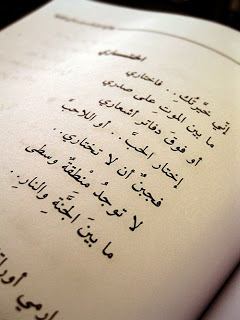 اختاري
إني خيرتُكِ.. فاختاري
ما بينَ الموتِ على صدري
أو فوقَ دفاترِ أشعاري
إختاري الحبَّ.. أو اللاحبَّ
فجبنٌ أن لا تختاري..
لا توجدُ منْطقةٌ وسطى
ما بينَ الجنّةِ والنارِ..
ارمي أوراقَ